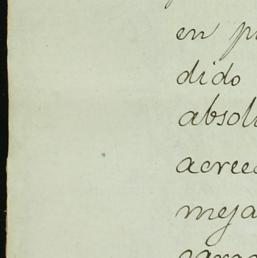 en p
dido
absol
acree
meja